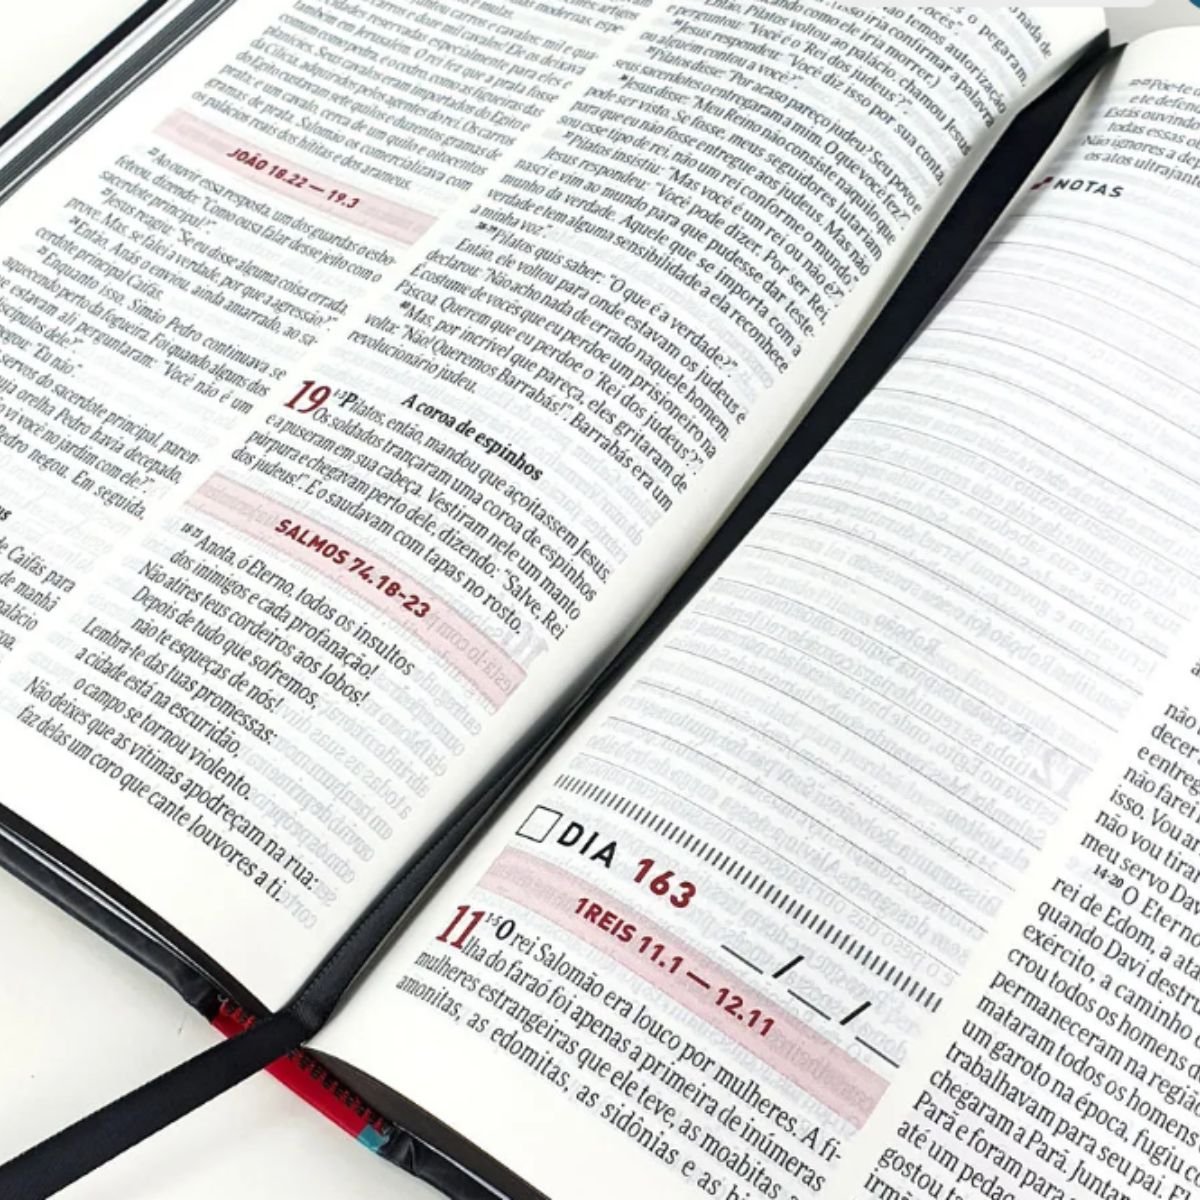 também em Jerusalém. O rei fez que a prata fosse
comum como pedra, e o cedro, como as figueiras das
planícies. Seus cavalos eram importados do Egito e
da Cilícia, adquiridos pelos agentes do rei. Os carros
do Egito custavam sete quilos e duzentos gramas de
prata; e um cavalo, cerca de um quilo e oitocentos
gramas de prata. Salomão os comercializava com
os palácios reais dos hititas e dos arameus.
JOÃO 18.22 — 19.3
Ao ouvir essa resposta, um dos guardas o esbo-
feteou, dizendo: “Como ousa falar desse jeito com o
sacerdote principal?”.
Jesus reagiu: “Se eu disse alguma coisa errada,
prove. Mas, se falei a verdade, por que a agressão?”.
Então, Anás o enviou, ainda amarrado, ao sa-
cerdote principal Caifás.
Enquanto isso, Simão Pedro continuava se
aquecendo perto da fogueira. Foi quando alguns dos
estavam ali perguntaram: “Você não é um
cípulos dele?”.
“Eu não”.
servos do sacerdote principal, paren
orelha Pedro havia decepado,
vi você no jardim com ele?”.
Pedro negou. Em seguida,
de Caifás para
de manhã
palácio
Então, Pilatos voltou ao palácio, chamou Jesus
e perguntou: “Você é o ‘Rei dos judeus’?”.
Jesus respondeu: “Você diz isso por sua conta,
ou alguém contou a você?”.
Pilatos disse: “Por acaso pareço judeu? Seu povo e
seus sacerdotes o entregaram a mim. O que você fez?”.
Jesus disse: “Meu Reino não consiste naquilo que
pode ser visto. Se fosse, meus seguidores lutariam
para que eu não fosse entregue aos judeus. Mas não
sou esse tipo de rei, não um rei conforme o mundo”.
Pilatos insistiu: “Mas você é um rei ou não é?”.
Jesus respondeu: “Você pode dizer. Por ser Rei,
nasci e vim ao mundo para que pudesse dar teste-
munho da verdade. Aquele que se importa com a
verdade e tem alguma sensibilidade a ela reconhece
a minha voz”.
Pilatos quis saber: “O que é a verdade?”.
Então, ele voltou para onde estavam os judeus e
declarou: “Não acho nada de errado naquele homem.
É costume de vocês que eu perdoe um prisioneiro na
Páscoa. Querem que eu perdoe o ‘Rei dos judeus’?”.
Mas, por incrível que pareça, eles gritaram de
volta: “Não! Queremos Barrabás!”. Barrabás era um
revolucionário judeu.
A coroa de espinhos
19 1-3 Pilatos, então, mandou que açoitassem Jesus.
Os soldados trançaram uma coroa de espinhos
e a puseram em sua cabeça. Vestiram nele um manto
púrpura e chegavam perto dele, dizendo: “Salve, Rei
dos judeus!”. E o saudavam com tapas no rosto.
SALMOS 74.18-23
18-21 Anota, ó Eterno, todos os insultos
dos inimigos e cada profanação!
Não atires teus cordeiros aos lobos!
Depois de tudo que sofremos,
não te esqueças de nós!
Lembra-te das tuas promessas:
a cidade está na escuridão,
o campo se tornou violento.
Não deixes que as vítimas apodreçam na rua:
faz delas um coro que cante louvores a ti.
NOTAS
DIA 163 __/__/__
1REIS 11.1 — 12.11
11 1-5 O rei Salomão era louco por mulheres. A fi-
lha do faraó foi apenas a primeira de inúmeras
mulheres estrangeiras que ele teve, as moabitas,
amonitas, as edomitas, as sidônias e as
e te defenda
Estás ouvindo
todas essas
Não ignores a
os atos ultrajan
não
decer
e entreg
não farei
isso. Vou ar
não vou tirar
meu servo Dav
14-20 O Eterno
rei de Edom, a
quando Davi destr
exército, a caminho
crou todos os homens
permaneceram na região
mataram todos os homens
um garoto na época, fugiu
trabalhavam para seu pai. E
chegaram a Parã. Junta
Parã e foram para
até um peda
gostou
irm